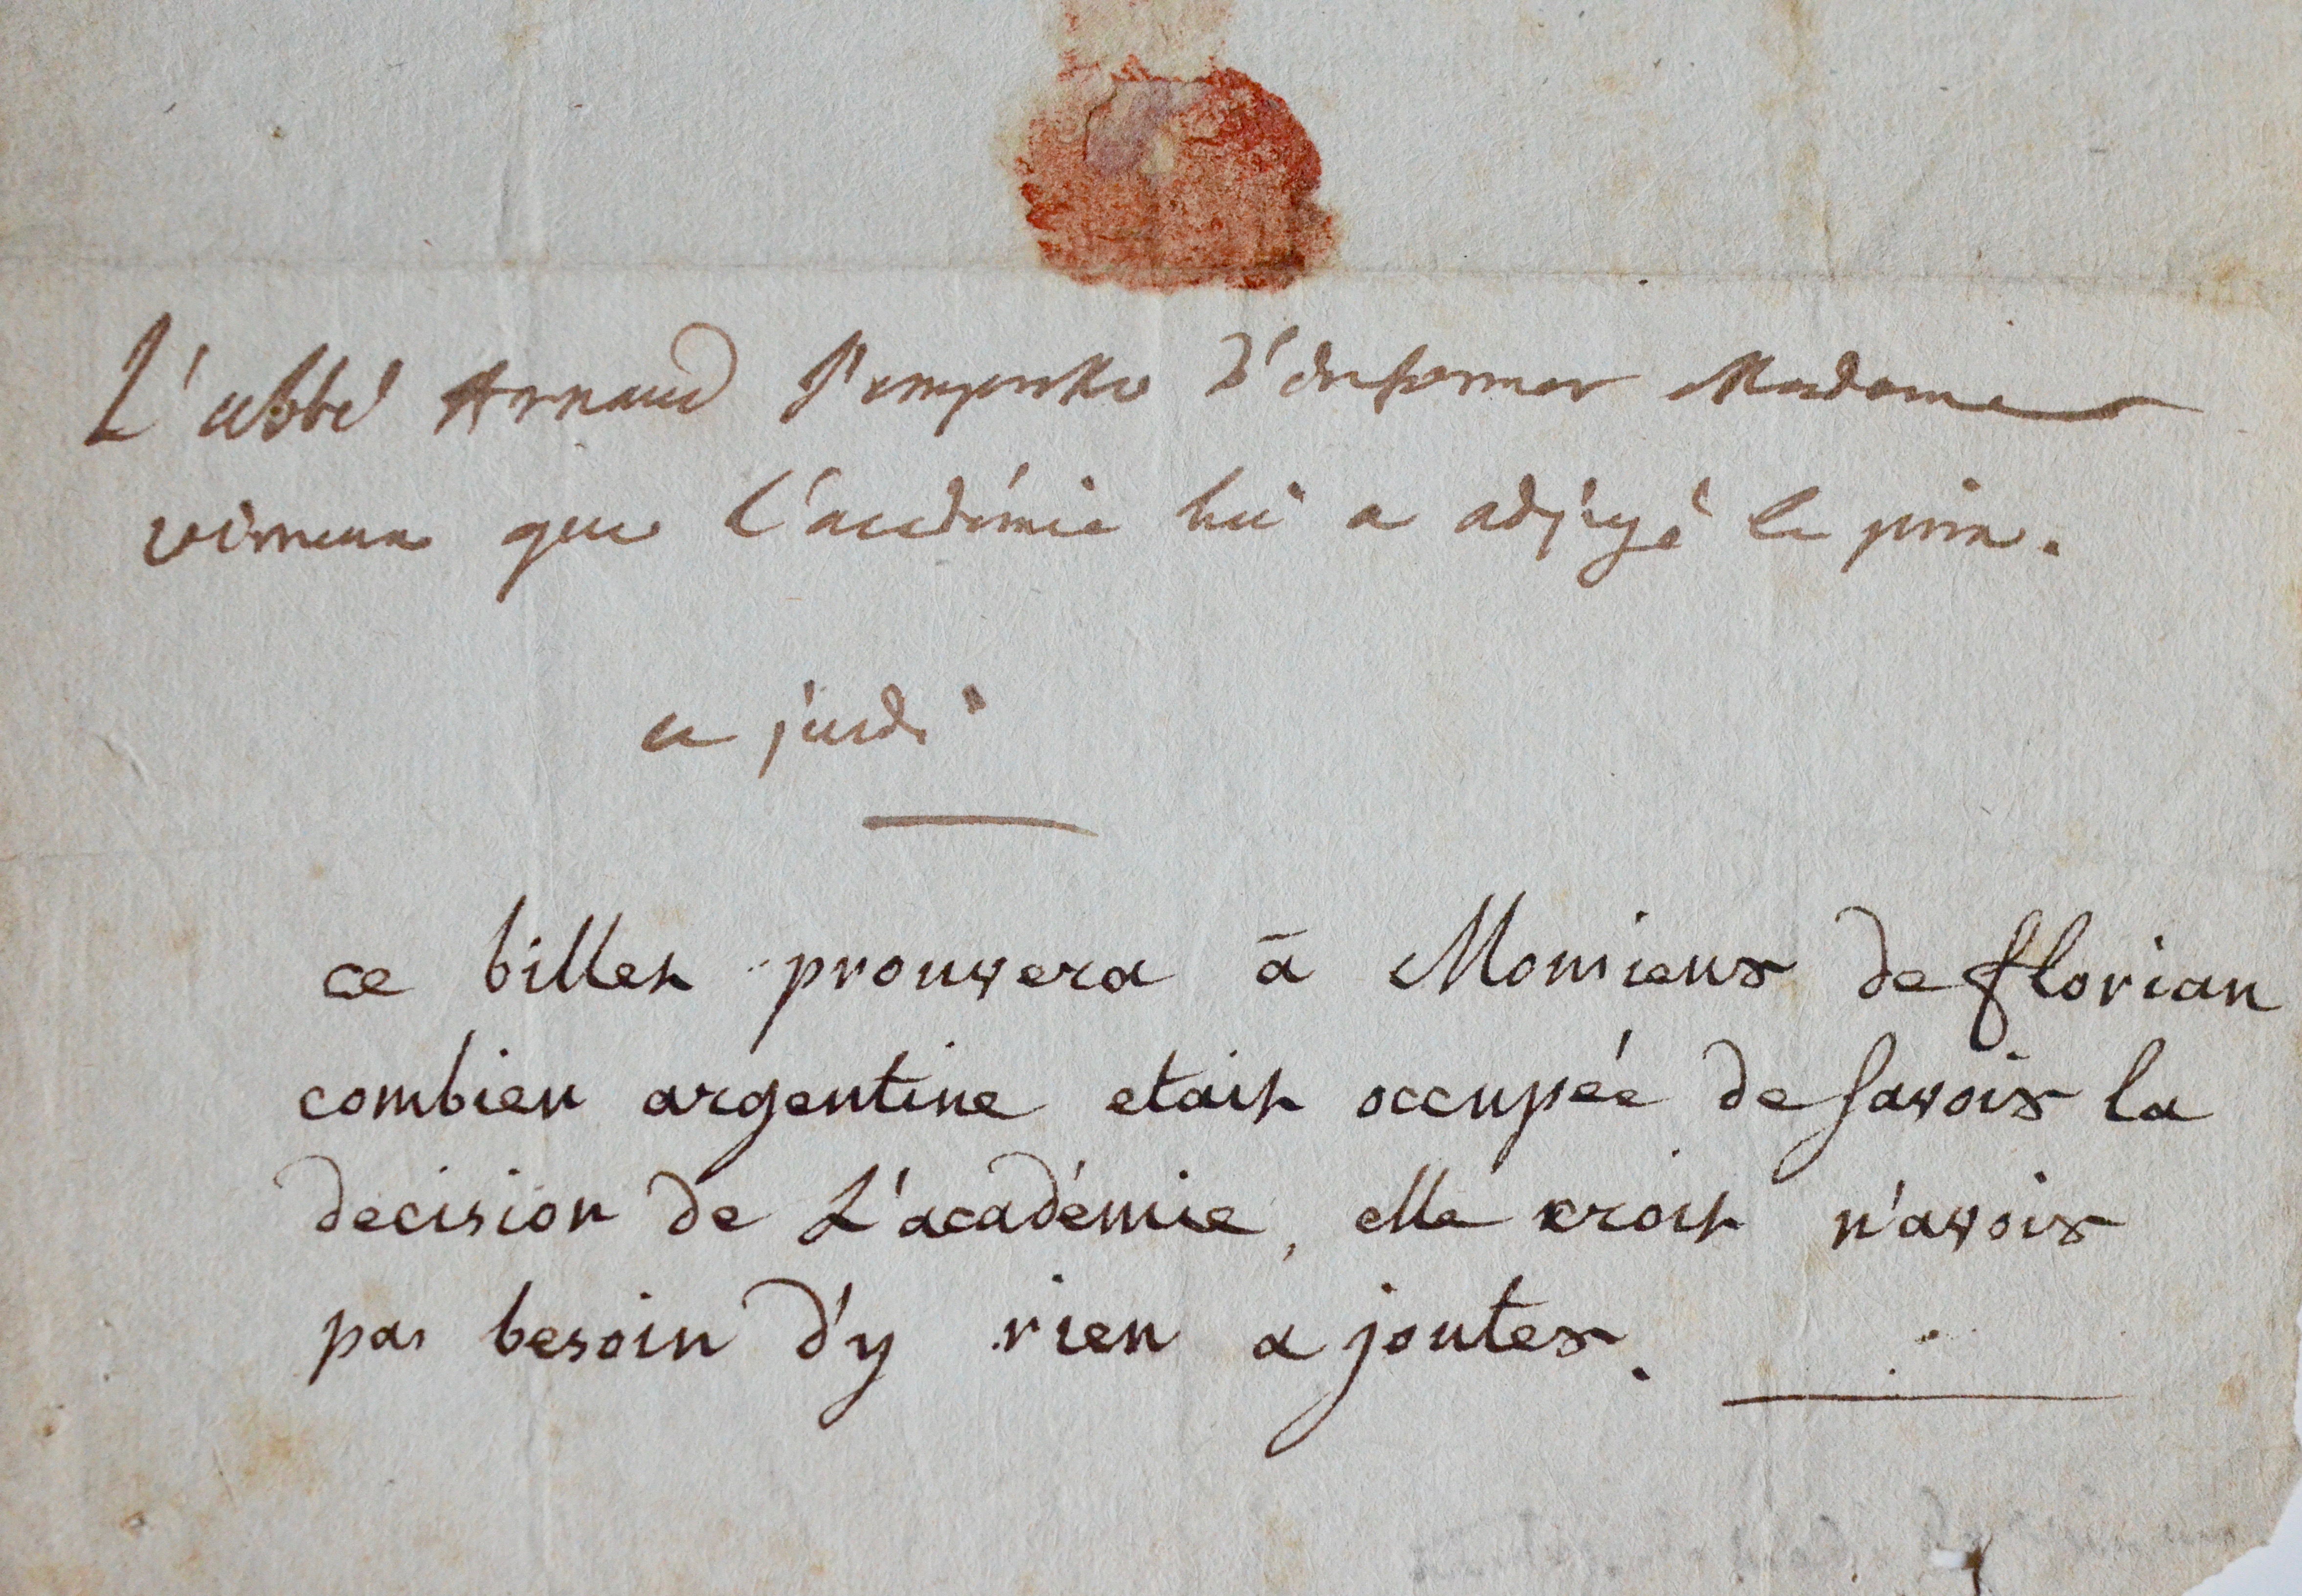 L'abbé Arnaud s'empresse d'informer Madame
vimeux que l'académie lui a adjugé le prix.
ce jeudi
ce billet prouvera à Monsieur de florian
combien argentine etait occupée de savoir la
decision de L'académie, elle croit n'avoir
pas besoin d'y rien ajouter.